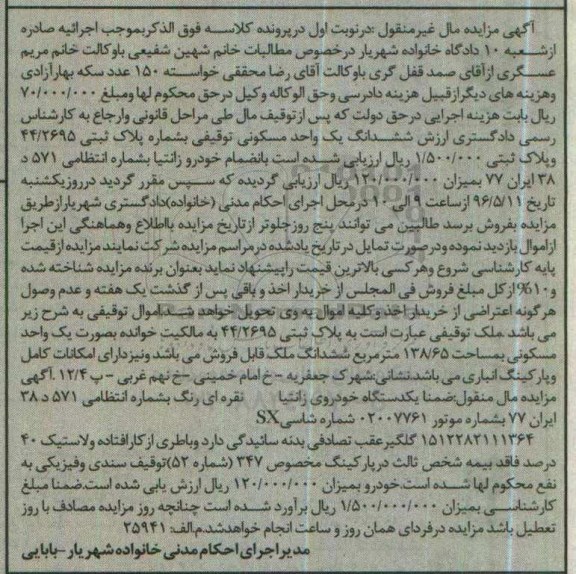 آگهی مزایده مال غیرمنقول :درنوبت اول درپرونده کلاسه فوق الذکربموجب اجرائیه صادره
ازشعبه ۱۰ دادگاه خانواده شهریار درخصوص مطالبات خانم شهین شفیعی باوکالت خانم مریم
عسگری ازآقای صمد قفل گری باوکالت آقای رضا محققی خواسته ۱۵۰ عدد سکه بهارآزادی
وهزینه های دیگرازقبیل هزینه دادرسی وحق الوکاله وکیل درحق محکوم لها ومبلغ ۷۰/۰۰۰/۰۰۰
ریال بابت هزینه اجرایی درحق دولت که پس ازتوقیف مال طی مراحل قانونی وارجاع به کارشناس
رسمی دادگستری ارزش ششدانگ یک واحد مسکونی توقیفی بشماره پلاک ثبتی ۴۴/۲۶۹۵
وپلاک ثبتی ۱/۵۰۰/۰۰۰ ریال ارزیابی شده است بانضمام خودرو زانتیا بشماره انتظامی ۵۷۱ د
۳۸ ایران ۷۷ بمیزان ریال ارزیابی گردیده که سپس مقرر گردید درروزیکشنبه
تاریخ ۹۶/۵/۱۱ ازساعت ۹ الی ۱۰ درمحل اجرای احکام مدنی (خانواده)دادگستری شهریارازطریق
مزایده بفروش برسد طالبین می توانند پنج روزجلوتر ازتاریخ مزایده بااطلاع وهماهنگی این اجرا
ازاموال بازدید نموده ودرصورت تمایل در تاریخ یادشده درمراسم مزایده شرکت نمایند مزایده ازقیمت
پایه کارشناسی شروع وهرکسی بالاترین قیمت راپیشنهاد نماید بعنوان برنده مزایده شناخته شده
و۱۰% ازکل مبلغ فروش فی المجلس از خریدار اخذ و باقی پس از گذشت یک هفته و عدم وصول
هرگونه اعتراضی از خریدار اخذ وکلیه اموال به وی تحویل خواهد شد.اموال توقیفی به شرح زیر
می باشد .ملک توقیفی عبارت است به پلاک ثبتی ۴۴/۲۶۹۵ به مالکیت خوانده بصورت یک واحد
مسکونی بمساحت ۱۳۸/۶۵ مترمربع ششدانگ ملک قابل فروش می باشد ونیزدارای امکانات کامل
وپارکینگ انباری می باشد.نشانی:شهرک جعفریه - خ امام خمینی -خ نهم غربی - پ ۱۲/۴ .آگهی
مزایده مال منقول:ضمنا یکدستگاه خودروی زانتیا نقره ای رنگ بشماره انتظامی ۵۷۱ د ۳۸
ایران ۷۷ بشماره موتور ۰۲۰۰۷۷۶۱ شماره شاسی SX
۱۵۱۲۲۸۲۱۱۱۳۶۴ گلگیرعقب تصادفی بدنه سائیدگی دارد وباطری ازکارافتاده ولاستیک ۴۰
درصد فاقد بیمه شخص ثالث درپارکینگ مخصوص ۳۴۷ (شماره ۵۲)توقیف سندی وفیزیکی به
نفع محکوم لها شده است.خودرو بمیزان ۱۲۰/۰۰۰/۰۰۰ ریال ارزش یابی شده است.ضمنا مبلغ
کارشناسی بمیزان ۱/۵۰۰/۰۰۰/۰۰۰ ریال برآورد شده است چنانچه روز مزایده مصادف با روز
تعطیل باشد مزایده درفردای همان روز و ساعت انجام خواهدشد.م.الف: ۲۵۹۴۱
مدیر اجرای احکام مدنی خانواده شهریار -بابایی